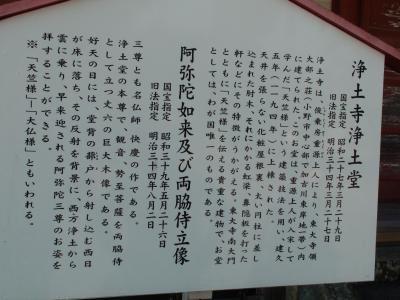 浄土寺浄土堂
国宝指定 昭和二十七年三月二十九日
旧法指定 明治三十四年三月二十七日
浄土寺は、俊乗房重源上人により、東大寺領
大部之荘（小野市中心部で加古川東岸地一帯）内
に建てられた。このお堂は、重源上人が入宋して
学んだ「天竺様」※という建築技法を用い、建久
五年（一一九四年）に上棟された。
天井を張らない化粧屋根裏、太い円柱に差し
込まれた肘木、それにかかる虹梁、鼻隠板を打った
軒などにその特徴がうかがえる。東大寺南大門
とともに「天竺様」を伝える貴重な建物で、お堂
としては、わが国唯一のものである。
阿弥陀如来及び両脇侍立像
国宝指定 昭和三十九年五月二十六日
旧法指定 明治三十四年八月二日
三尊とも名仏師 快慶の作である。
浄土堂の本尊で、観音、勢至菩薩を両脇侍
として立つ丈六の巨大木像である。
好天の日には、堂背の蔀戸から射し込む西日
が床に落ち、その反射を背景に、西方浄土から
雲に乗り、早来迎される阿弥陀三尊のお姿を
拝することができる。
※「天竺様」―「大仏様」ともいわれる。